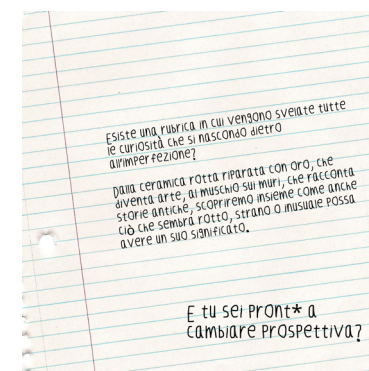 Esiste una rubrica in cui vengono svelate tutte
le curiosità che si nascondo dietro
all'imperfezione?
Dalla ceramica rotta riparata con oro, che
diventa arte, al muschio sui muri, che racconta
storie antiche, scopriremo insieme come anche
ciò che sembra rotto, strano o inusuale possa
avere un suo significato.
E tu sei pront* a
cambiare prospettiva?